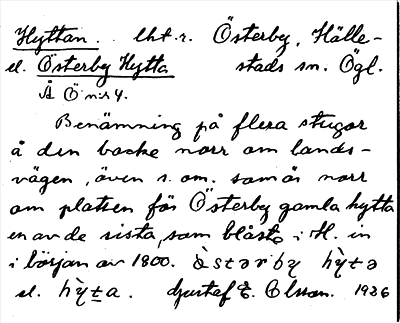 Hyttan. lht. r. Österby, Hälle-
el. Österby Hytta stads sn. Ögl.
Å Ö n:r 4.
Benämning på flera stugor
å den backe norr om lands-
vägen, även s. om. som är norr
om platsen för Österby gamla hytta
en av de sista, som blåste i H. in
i början av 1800. ò̀stərby hỳtə
el. hỳta. Gustaf E. Olsson. 1926